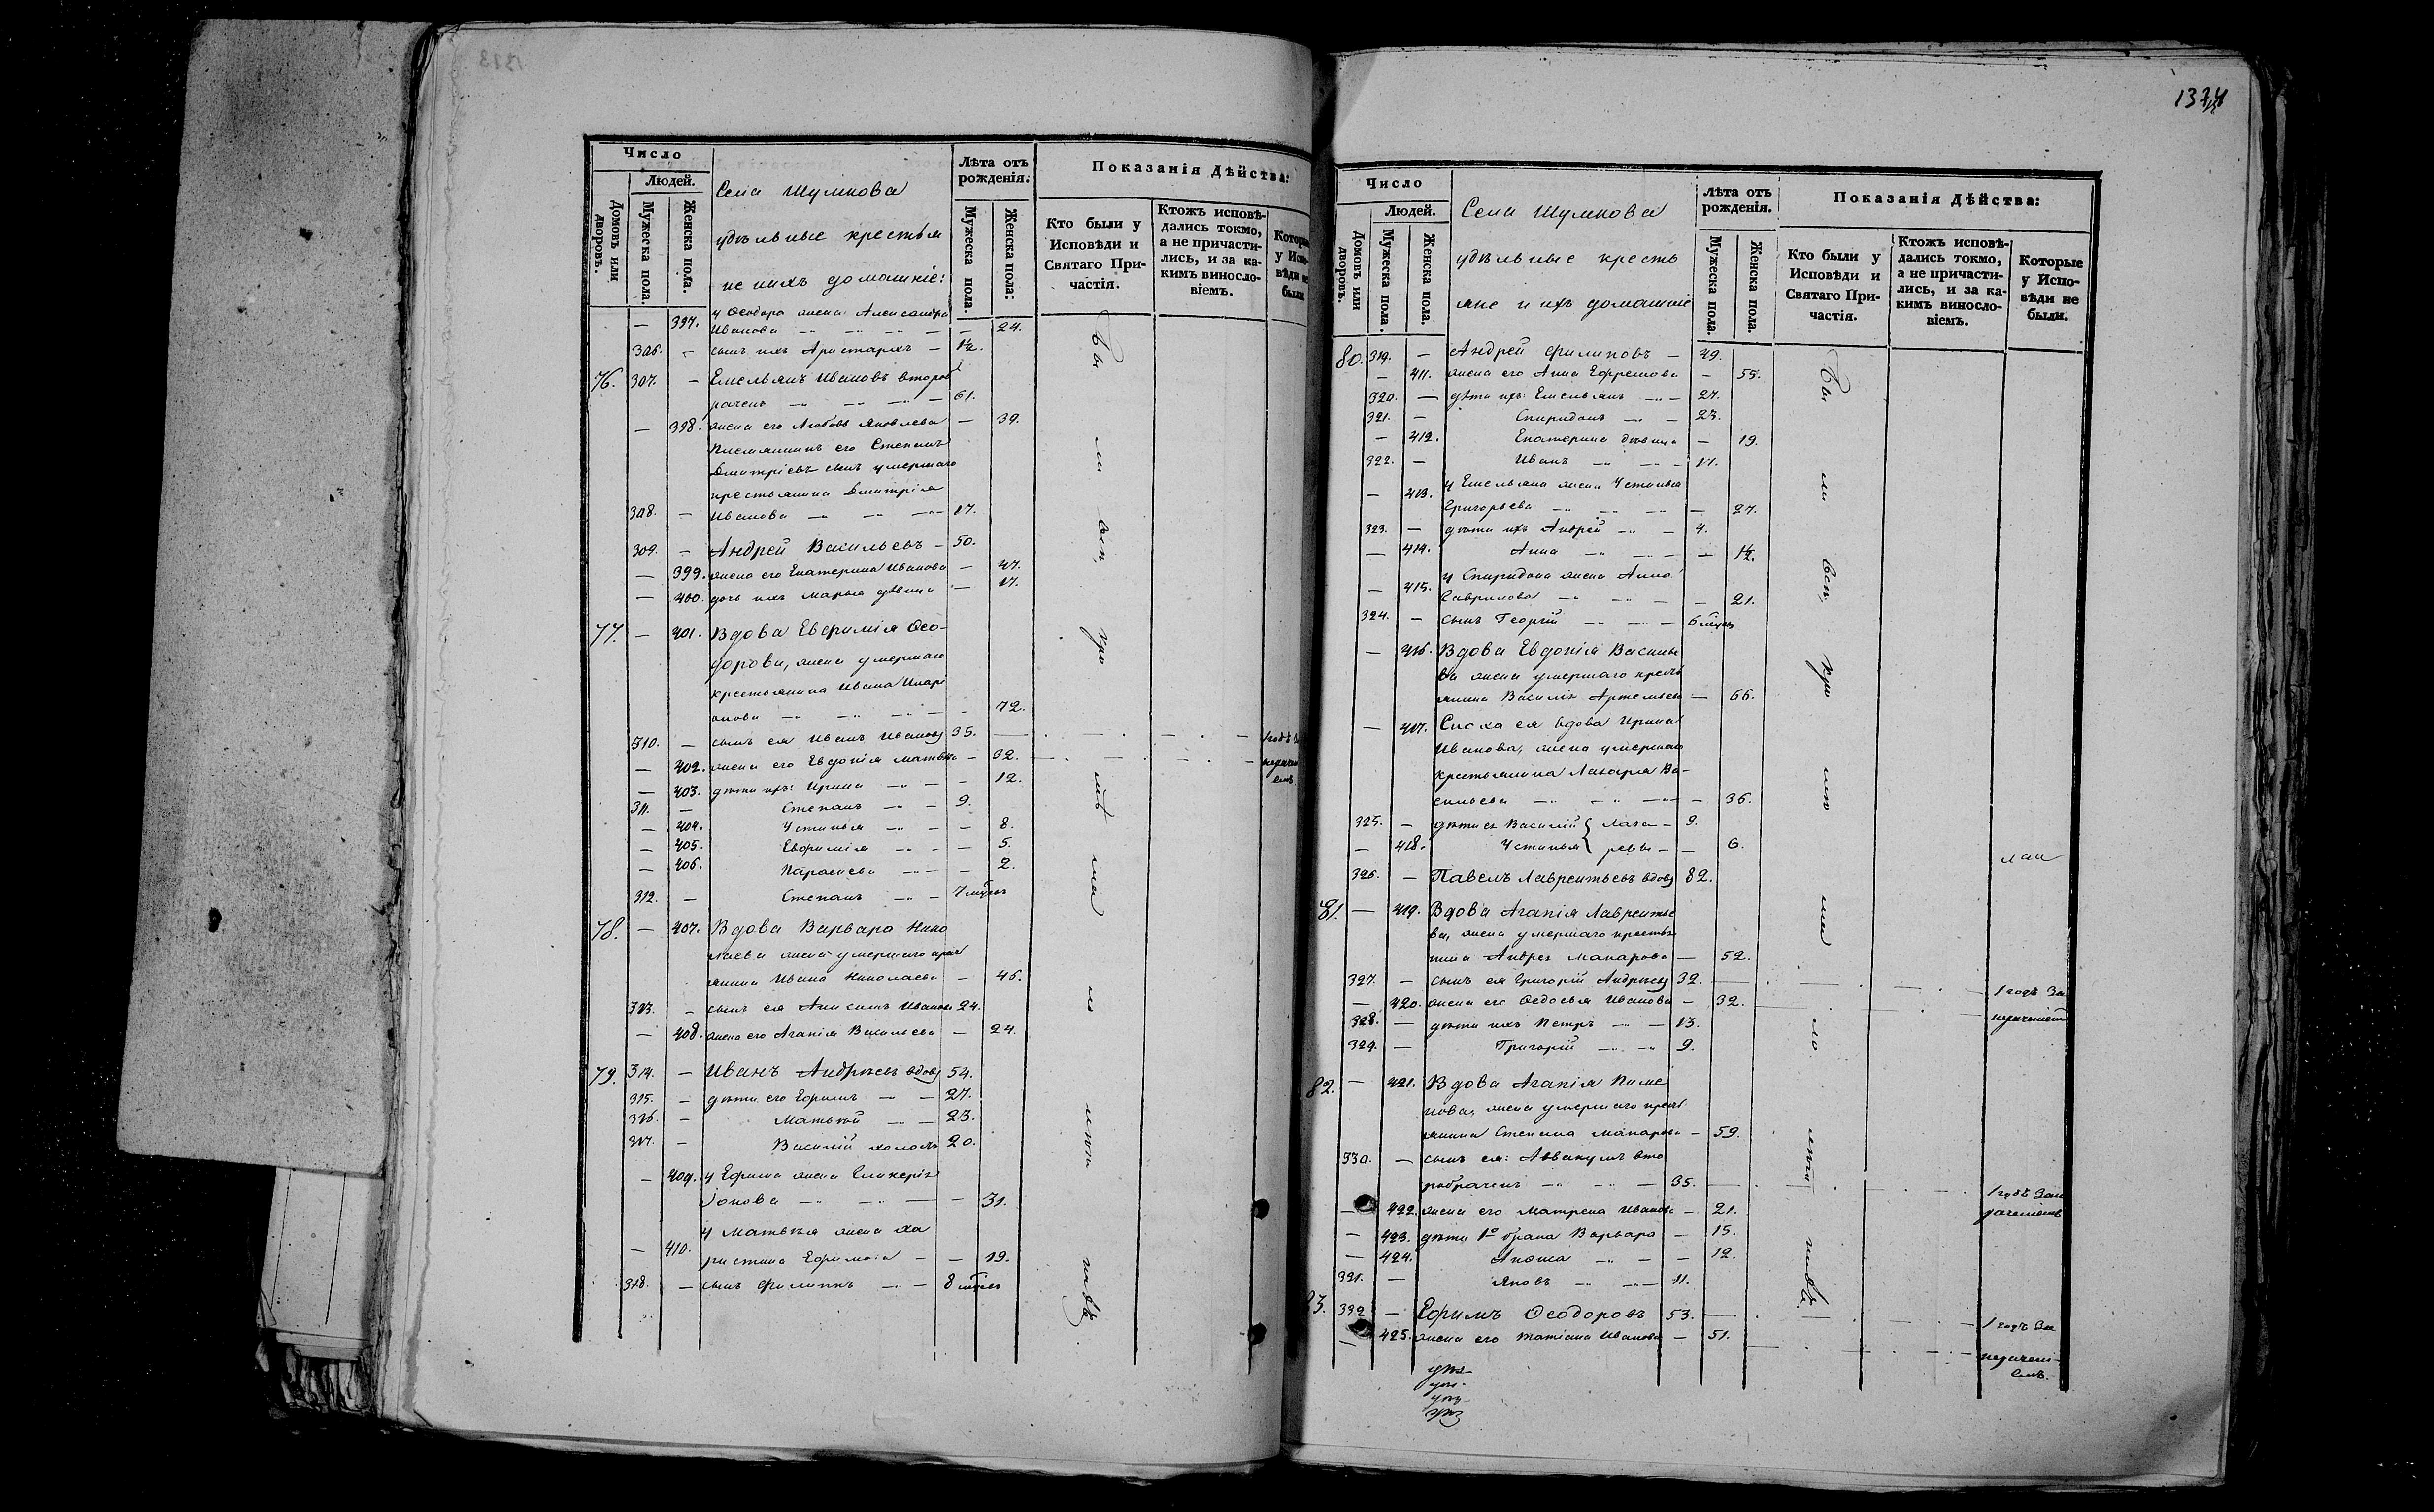 Число
Людей.
Домовъ или дворовъ.
Мужеска пола.
Женска пола.
Села Шумкова
удѣльные крестья
не ихъ домашніе:
Лѣта отъ рожденія.
Мужеска пола.
Женска пола:
Показанія Дѣйства:
Кто были у Исповѣди и Святаго Причастія.
Ктожъ исповѣдались токмо, а не причастились, и за какимъ винословіемъ.
Которые у Исповѣди не были.
— 397. у Ѳеодора жена Александра
Иванова — — 24.
306. — сынъ ихъ Аристархъ — 1½.
76. 307. — Емельянъ Ивановъ второб
раченъ — 61.
— 398. жена его Любовь Яковлева — 39.
Племянникъ его Степанъ
Дмитріевъ сынъ умершаго
крестьянина Дмитрія
308. — Иванова — 17.
309. — Андрей Васильевъ — 50.
— 399. жена его Екатерина Иванова — 47.
— 400. дочь ихъ Марья дѣвица — 17.
77. — 401. Вдова Евфимія Ѳео-
дорова, жена умершаго
крестьянина Ивана Илари
онова — — 72.
310. — сынъ ея Иванъ Ивановъ 35. —
— 402. жена его Евдокія Матвѣева — 32. —
— 403. дѣти ихъ: Ирина — 12.
311. — Степанъ — 9.
— 404. Устинья — — 8.
— 405. Евфимія — — 5.
— 406. Параскева — — 2.
312. — Степанъ — 7 мцовъ
78. — 407. Вдова Варвара Нико
лаева жена умершаго крест
янина Ивана Николаева — 46.
313. — сынъ ея Анисимъ Ивановъ 24.
— 408. жена его Агапія Васильева — 24.
79. 314. — Иванъ Андреевъ вдовъ 54.
315. — дѣти его Ефимъ — 27.
316. — Матвѣй — 23.
317. — Василій холостъ 20.
— 409. у Ефима жена Гликерія
Іонова — — 31.
— 410. у Матвѣя жена Ха
ристина Ефимова — — 19.
318. — сынъ Филиппъ — 8 мцовъ
1374
Число
Людей.
Домовъ или дворовъ.
Мужеска пола.
Женска пола.
Села Шумкова
удѣльные кресть
яне и ихъ домашніе
Лѣта отъ рожденія.
Мужеска пола.
Женска пола.
Показанія Дѣйства:
Кто были у Исповѣди и Святаго Причастія.
Ктожъ исповѣдались токмо, а не причастились, и за какимъ винословіемъ.
Которые у Исповѣди не были.
80. 319. — Андрей Филиповъ — 49.
— 411. жена его Анна Ефремова — 55.
320. — дѣти ихъ: Емельянъ — 27.
321. — Спиридонъ — 23.
— 412. Екатерина дѣвица — 19.
322. — Иванъ — 17.
— 413. у Емельяна жена Устинья
Григорьева — — 27.
323. — дѣти ихъ Андрей — 4.
— 414. Анна — — 1½.
— 415. у Спиридона жена Анна
Гаврилова — — 21.
324. — сынъ Георгій — 6 мцовъ
— 416. Вдова Евдокія Василье
ва жена умершаго кресть
янина Василія Артемьева — 66.
— 417. Сноха ея вдова Ирина
Иванова, жена умершаго
крестьянина Лазаря Ва-
сильева — — 36.
325. — дѣти ея Василій } Лаза — 9.
— 418. Устинья } ревы — — 6.
326. — Павелъ Лаврентьевъ вдовъ 82.
81. — 419. Вдова Агапія Лавренть
ва, жена умершаго крестья
нина Андрея Макарова — 52.
327. — сынъ ея Григорій Андреевъ 32. — 1 годъ за
— 420. жена его Ѳедосья Иванова — 32. — нераченіемъ
328. — дѣти ихъ Петръ — 13.
329. — Григорій — 9.
82. — 421. Вдова Агапія Пиме
нова, жена умершаго крест
янина Степана Макарова — 59.
330. — сынъ ея: Аввакумъ вто
робраченъ — 35. —
— 422. жена его Матрена Иванова — 21.
— 423. дѣти 1го брака Варвара — 15.
— 424. — 12.
331. — Яковъ — 11.
332. — Ефимъ Ѳеодоровъ 53. — 1 годъ за
— 425. жена его Татіана Иванова — 51. —